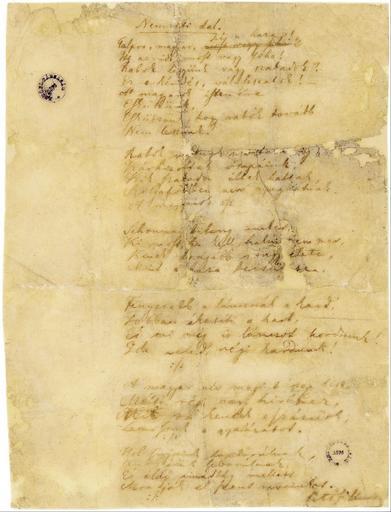 Nemzeti dal.
Talpra magyar, hí a haza!
Itt az idő, most vagy soha!
Rabok legyünk vagy szabadok?
Ez a kérdés, válasszatok!
A magyarok istenére
Esküszünk,
Esküszünk, hogy rabok tovább
Nem leszünk!
Rabok voltunk mostanáig,
Kárhozottak ősapáink,
Kik szabadon éltek haltak,
Szolgaföldben nem nyughatnak.
A magyarok
Sehonnai bitang ember,
Ki most, ha kell, halni nem mer,
Kinek drágább rongy élete,
Mint a haza becsülete.
Fényesebb a láncnál a kard,
Jobban ékesíti a kart,
És mi mégis láncot hordunk!
Ide veled, régi kardunk!
A magyar név megint szép lesz,
Méltó régi nagy hiréhez;
Mit rákentek a századok,
Lemossuk a gyalázatot.
Hol sírjaink domborulnak,
Unokáink leborulnak,
És áldó imádság mellett
Mondják el szent neveinket.
Petőfi Sándor